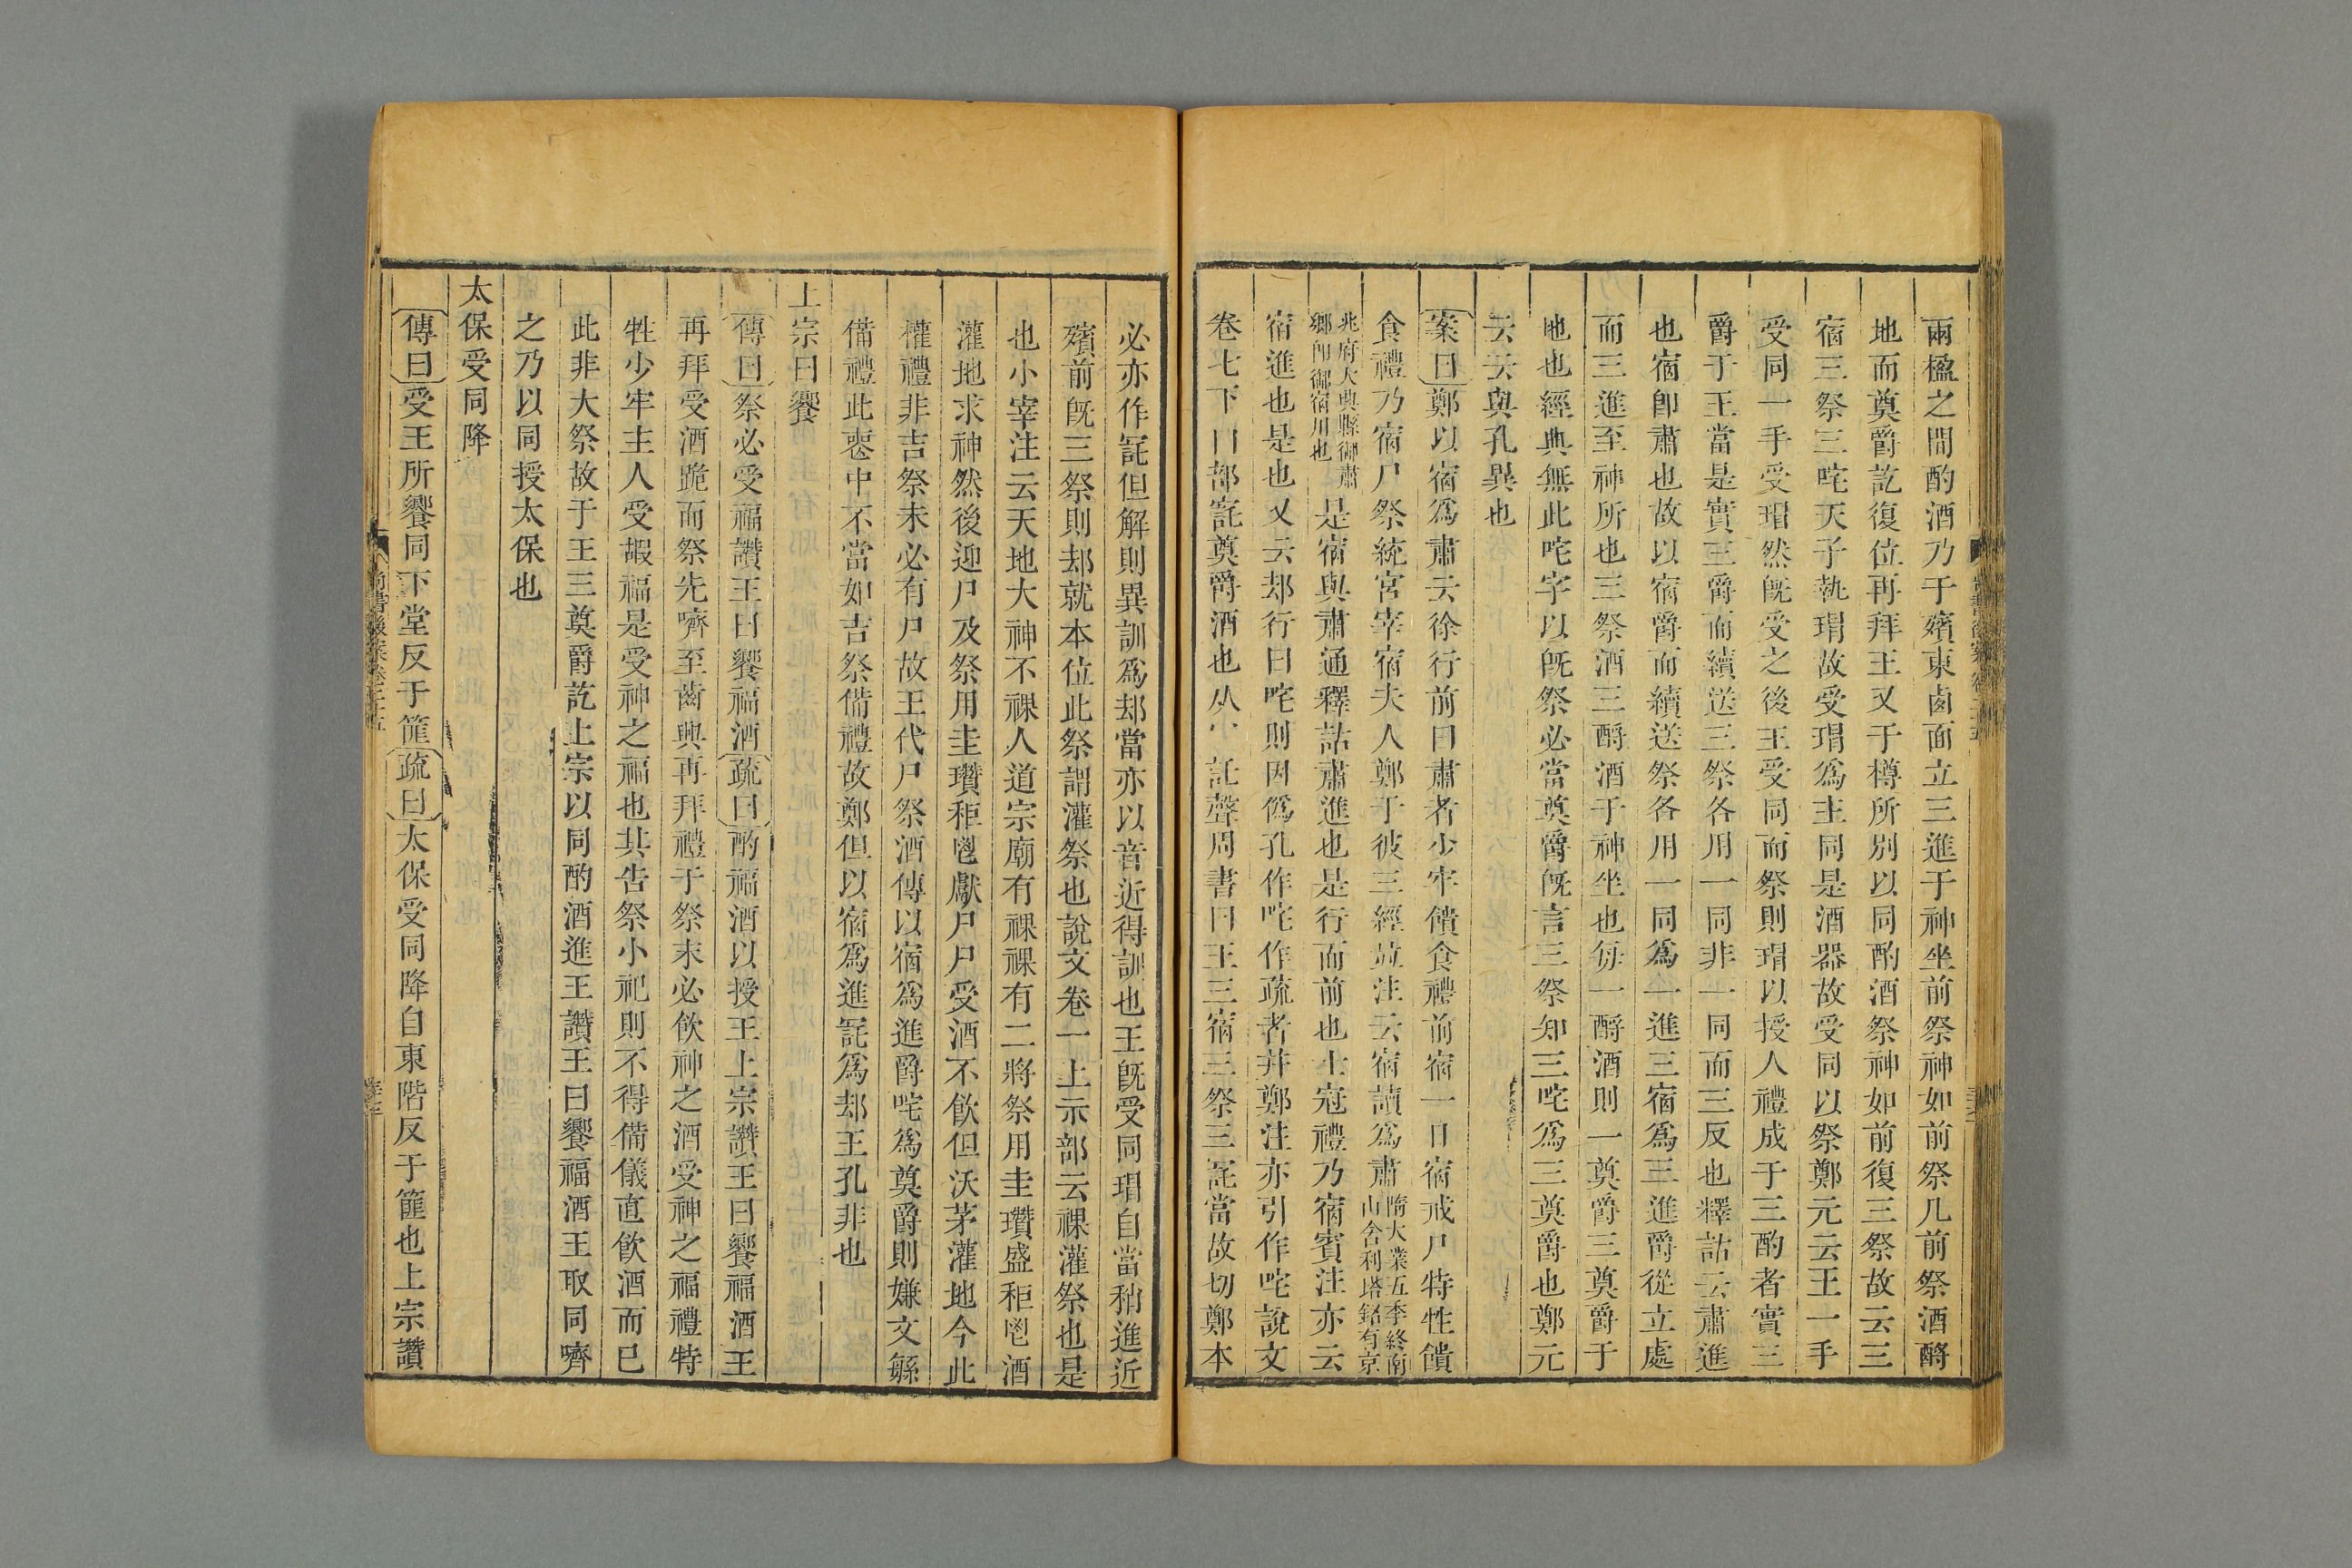 兩楹之間酌酒乃于殯東鹵面立三進于神坐前祭神如前祭几前祭酒酹
地而奠爵訖復位再拜王又于樽所別以同酌酒祭神如前復三祭故云三
宿三祭三咤天子執瑁故受瑁爲主同是酒器故受同以祭鄭元云王一手
受同一手受瑁然旣受之後王受同而祭則瑁以授人禮成于三酌者實三
爵于王當是實三爵而續送三祭各用一同非一同而三反也釋詁云肅進
也宿卽肅也故以宿爵而續送祭各用一同爲一進三宿爲三進爵從立處
而三進至神所也三祭酒三酹酒于神坐也每一酹酒則一奠爵三奠爵于
地也經典無此咤字以旣祭必當奠爵旣言三祭知三咤爲三奠爵也鄭元
云云與孔異也
案曰鄭以宿爲肅云徐行前曰肅者少牢饋食禮前宿一日宿戒尸特牲饋
食禮乃宿尸祭統宮宰宿夫人鄭于彼三經竝注云宿讀爲肅隋大業五季終南山舍利塔銘有京
兆府大興縣御肅鄉卽御宿川也是宿與肅通釋詁肅進也是行而前也士冠禮乃宿賓注亦云
宿進也是也又云却行曰咤則因僞孔作咤作疏者幷鄭注亦引作咤說文
卷七下冂部㓃奠爵酒也从冖託聲周書曰王三宿三祭三㓃當故切鄭本
必亦作㓃但解則異訓爲却當亦以音近得訓也王旣受同瑁自當稍進近
殯前旣三祭則却就本位此祭謂灌祭也說文卷一上示部云祼灌祭也是
也小宰注云天地大神不祼人道宗廟有祼祼有二將祭用圭瓚盛秬鬯酒
灌地求神然後迎尸及祭用圭瓚秬鬯獻尸尸受酒不飮但沃茅灌地今此
權禮非吉祭未必有尸故王代尸祭酒傳以宿爲進爵咤爲奠爵則嫌文繇
備禮此喪中不當如吉祭備禮故鄭但以宿爲進㓃爲却王孔非也
上宗曰饗
傳曰祭必受福讚王曰饗福酒疏曰酌福酒以授王上宗讚王曰饗福酒王
再拜受酒跪而祭先嚌至齒興再拜禮于祭末必飮神之酒受神之福禮特
牲少牢主人受嘏福是受神之福也其告祭小祀則不得備儀直飮酒而已
此非大祭故于王三奠爵訖上宗以同酌酒進王讚王曰饗福酒王取同嚌
之乃以同授太保也
太保受同降
傳曰受王所饗同下堂反于篚疏曰太保受同降自東階反于篚也上宗讚